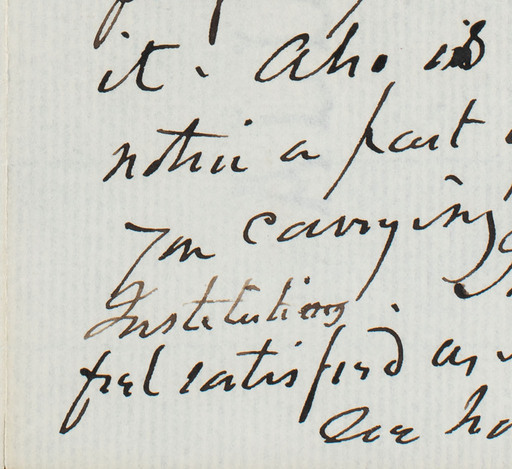 it. Also is
notice a part
for carrying
Institutions.
feel satisfied as
See ho